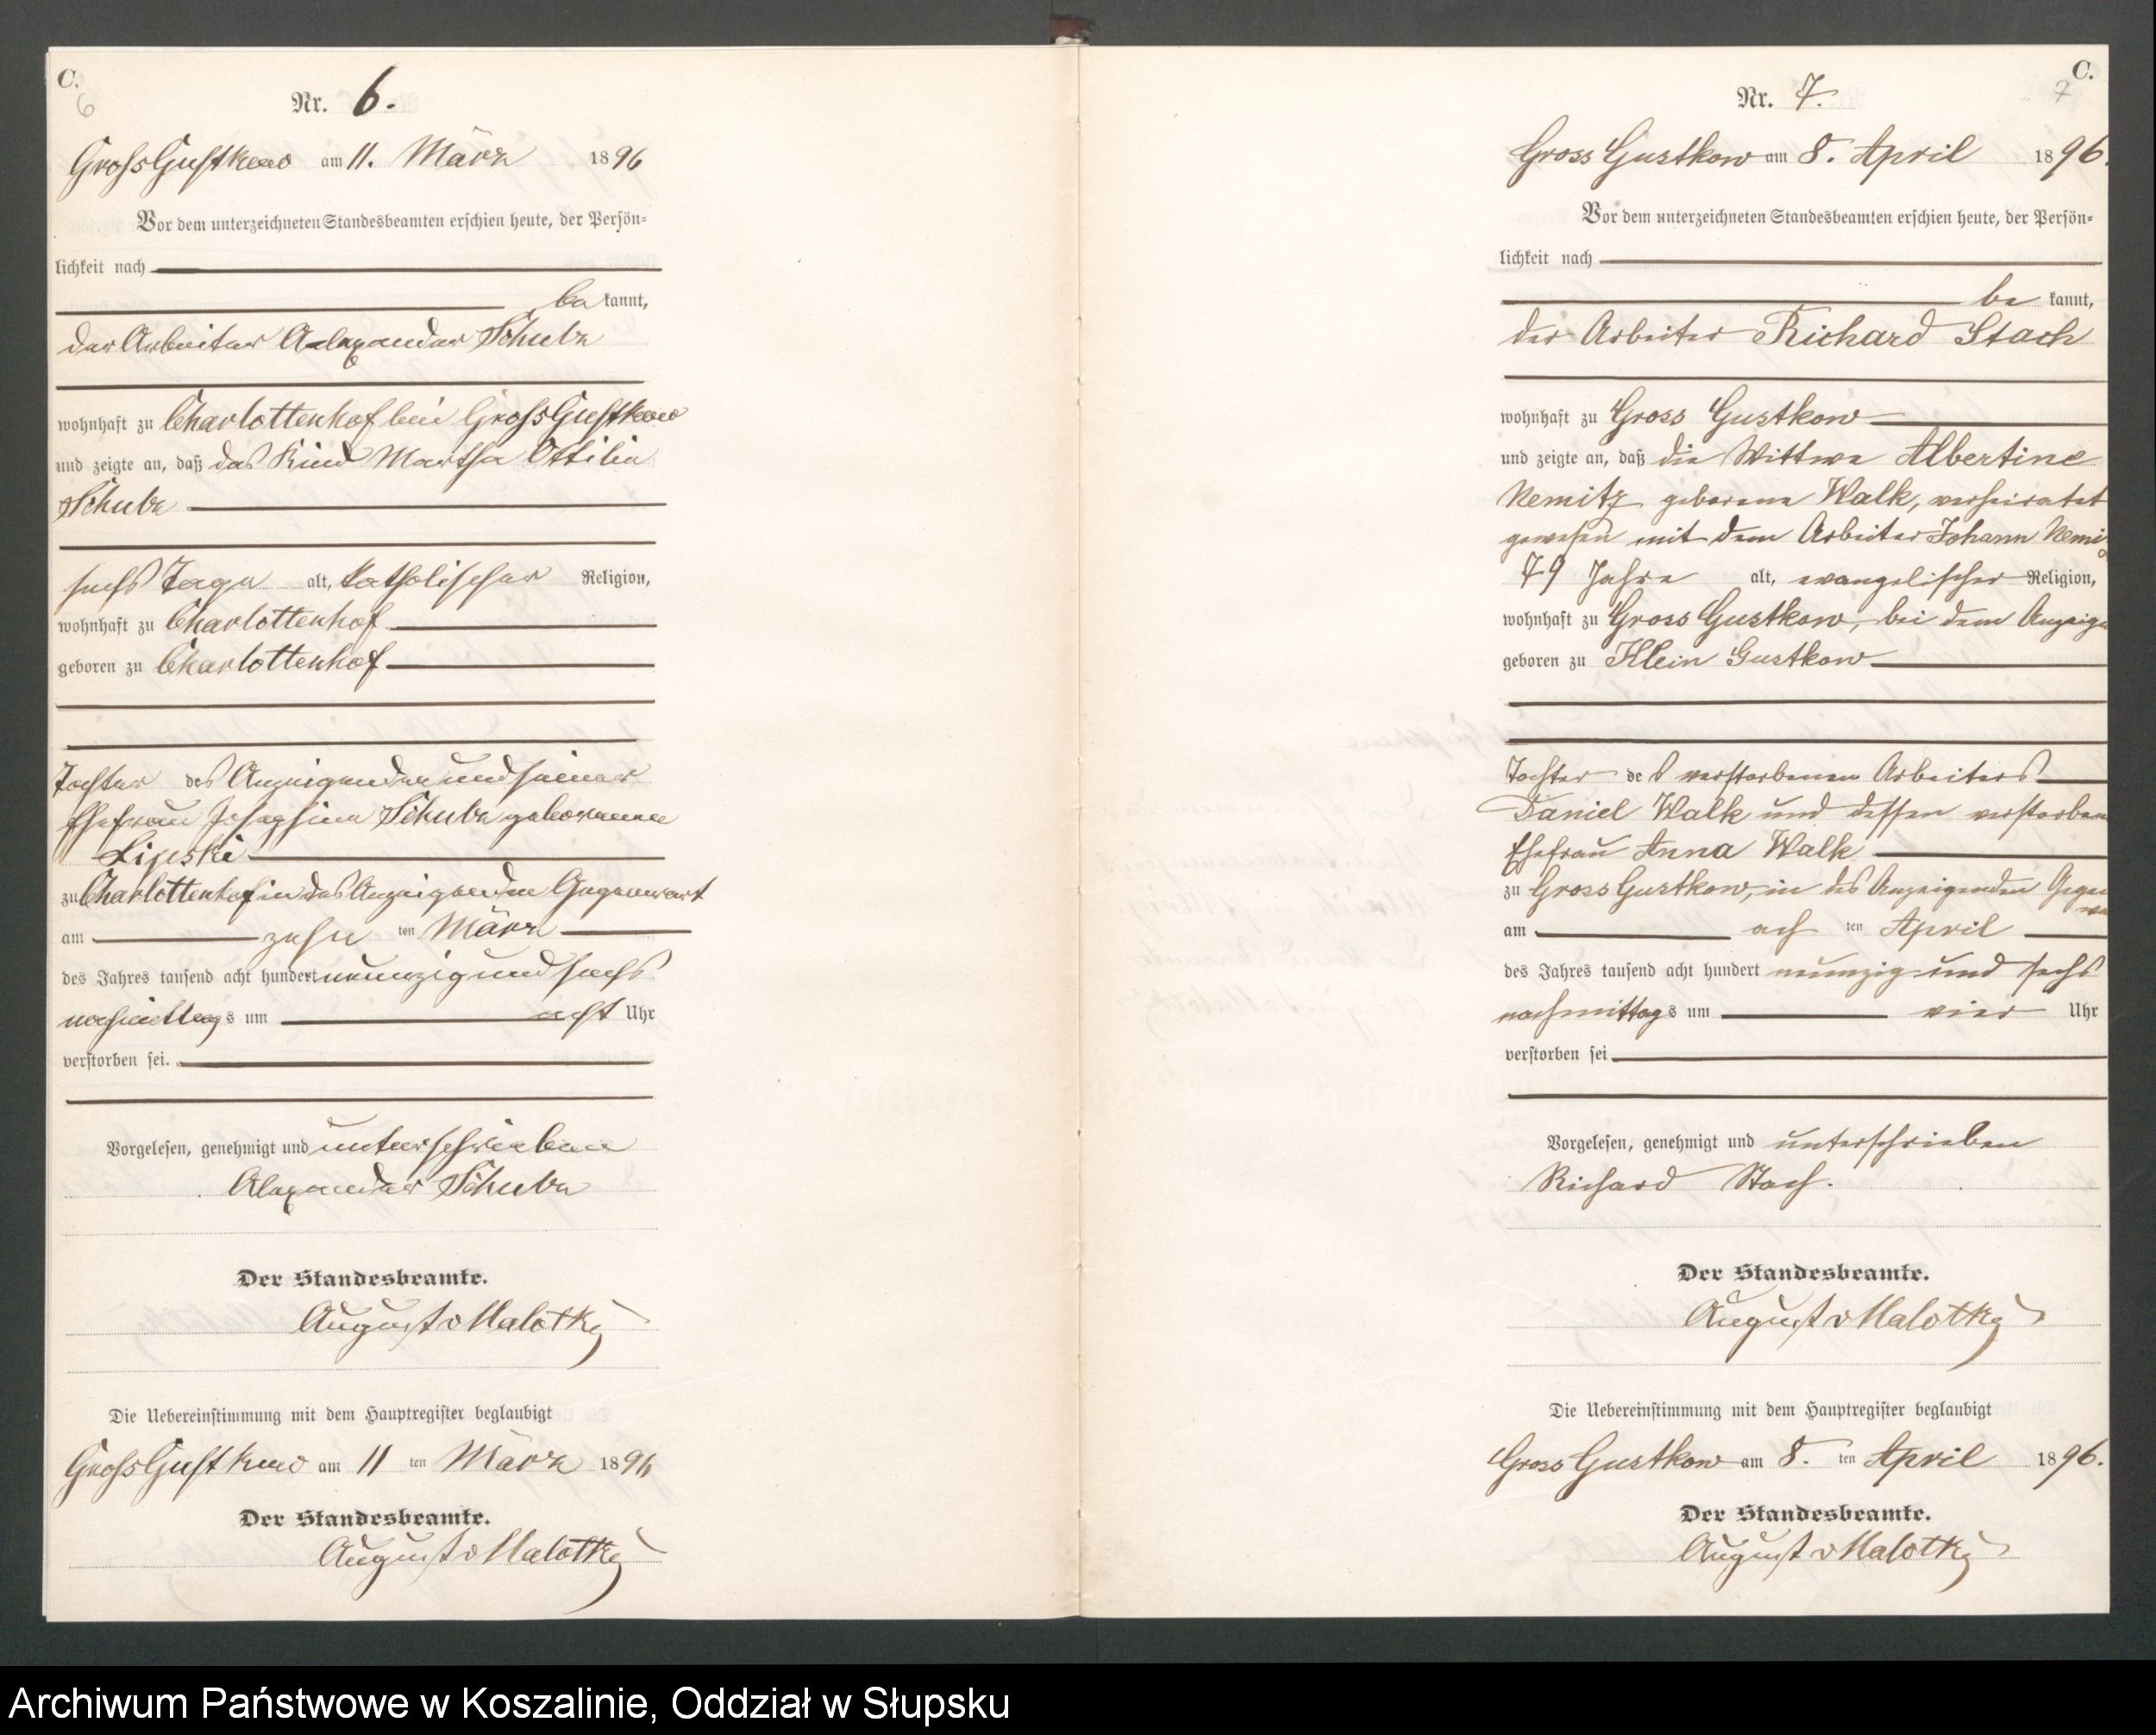 C.
6
Nr. 6.
Gross Gustkow am 11. März 1896
Vor dem unterzeichneten Standesbeamten erschien heute, der Persön-
lichkeit nach
be kannt,
der Arbeiter Alexander Schulz
wohnhaft zu Charlottenhof bei Gross Gustkow
und zeigte an, daß das Kind Martha Ottilie
Schulz
sechs Tage alt, katholischer Religion,
wohnhaft zu Charlottenhof
geboren zu Charlottenhof
Tochter des Anzeigenden und seiner
Ehefrau Josephine Schulz geborenen
Lipski
zu Charlottenhof in des Anzeigenden Gegenwart
am zehn ten März
des Jahres tausend acht hundert neunzig und sechs
nachmittags um acht Uhr
verstorben sei.
Vorgelesen, genehmigt und unterschrieben
Alexander Schulz
Der Standesbeamte.
August v Malotky
Die Uebereinstimmung mit dem Hauptregister beglaubigt
Gross Gustkow am 11 ten März 1896
Der Standesbeamte.
August v Malotky
C.
7
Nr. 7.
Gross Gustkow am 8. April 1896.
Vor dem unterzeichneten Standesbeamten erschien heute, der Persön-
lichkeit nach
be kannt,
der Arbeiter Richard Stach
wohnhaft zu Gross Gustkow
und zeigte an, daß die Wittwe Albertine
Nemitz geborene Walk, verheiratet
gewesen mit dem Arbeiter Johann Nemi
79 Jahre alt, evangelischer Religion,
wohnhaft zu Gross Gustkow, bei dem Anzeige
geboren zu Klein Gustkow
Tochter des verstorbenen Arbeiters
Daniel Walk und dessen verstorben
Ehefrau Anna Walk
zu Gross Gustkow, in des Anzeigenden Gegen
wa
am ach ten April
des Jahres tausend acht hundert neunzig und sechs
nachmittags um vier Uhr
verstorben sei
Vorgelesen, genehmigt und unterschrieben
Richard Stach.
Der Standesbeamte.
August v Malotky
Die Uebereinstimmung mit dem Hauptregister beglaubigt
Gross Gustkow am 8. ten April 1896.
Der Standesbeamte.
August v Malotky
Archiwum Państwowe w Koszalinie, Oddział w Słupsku